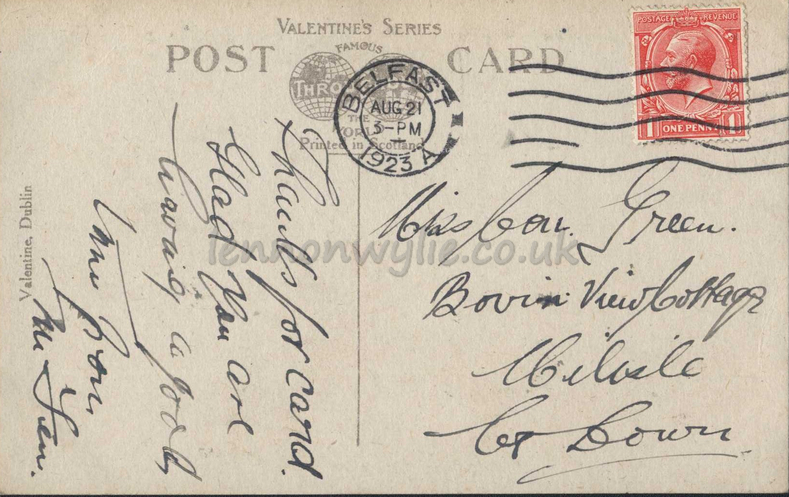 VALENTINE'S SERIES
POST CARD
FAMOUS
THRO
THE
WORLD
Printed in Scotland
BELFAST
AUG 21
3-PM
1923 A
POSTAGE REVENUE
1 ONE PENNY 1
Thanks for card.
Glad you are
having a good
time
Miss Green.
Bovin View Cottage
Milisle
Co Down.
Valentine, Dublin
lennonwylie.co.uk